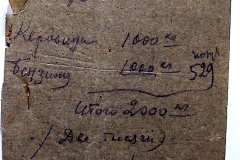 Керосину 1000 кг
Бензину 1000 кг 529
Итого 2000 кг
/ Две тысячи /